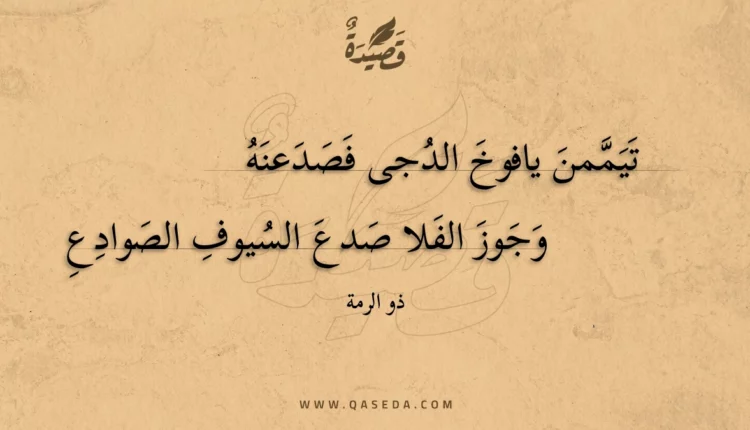 قَصِيْدَةٌ
تَيَمَّمنَ يافوخَ الدُجى فَصَدَعنَهُ
وَجَوزَ الفَلا صَدعَ السُيوفِ الصَوادِعِ
ذو الرمة
WWW.QASEDA.COM